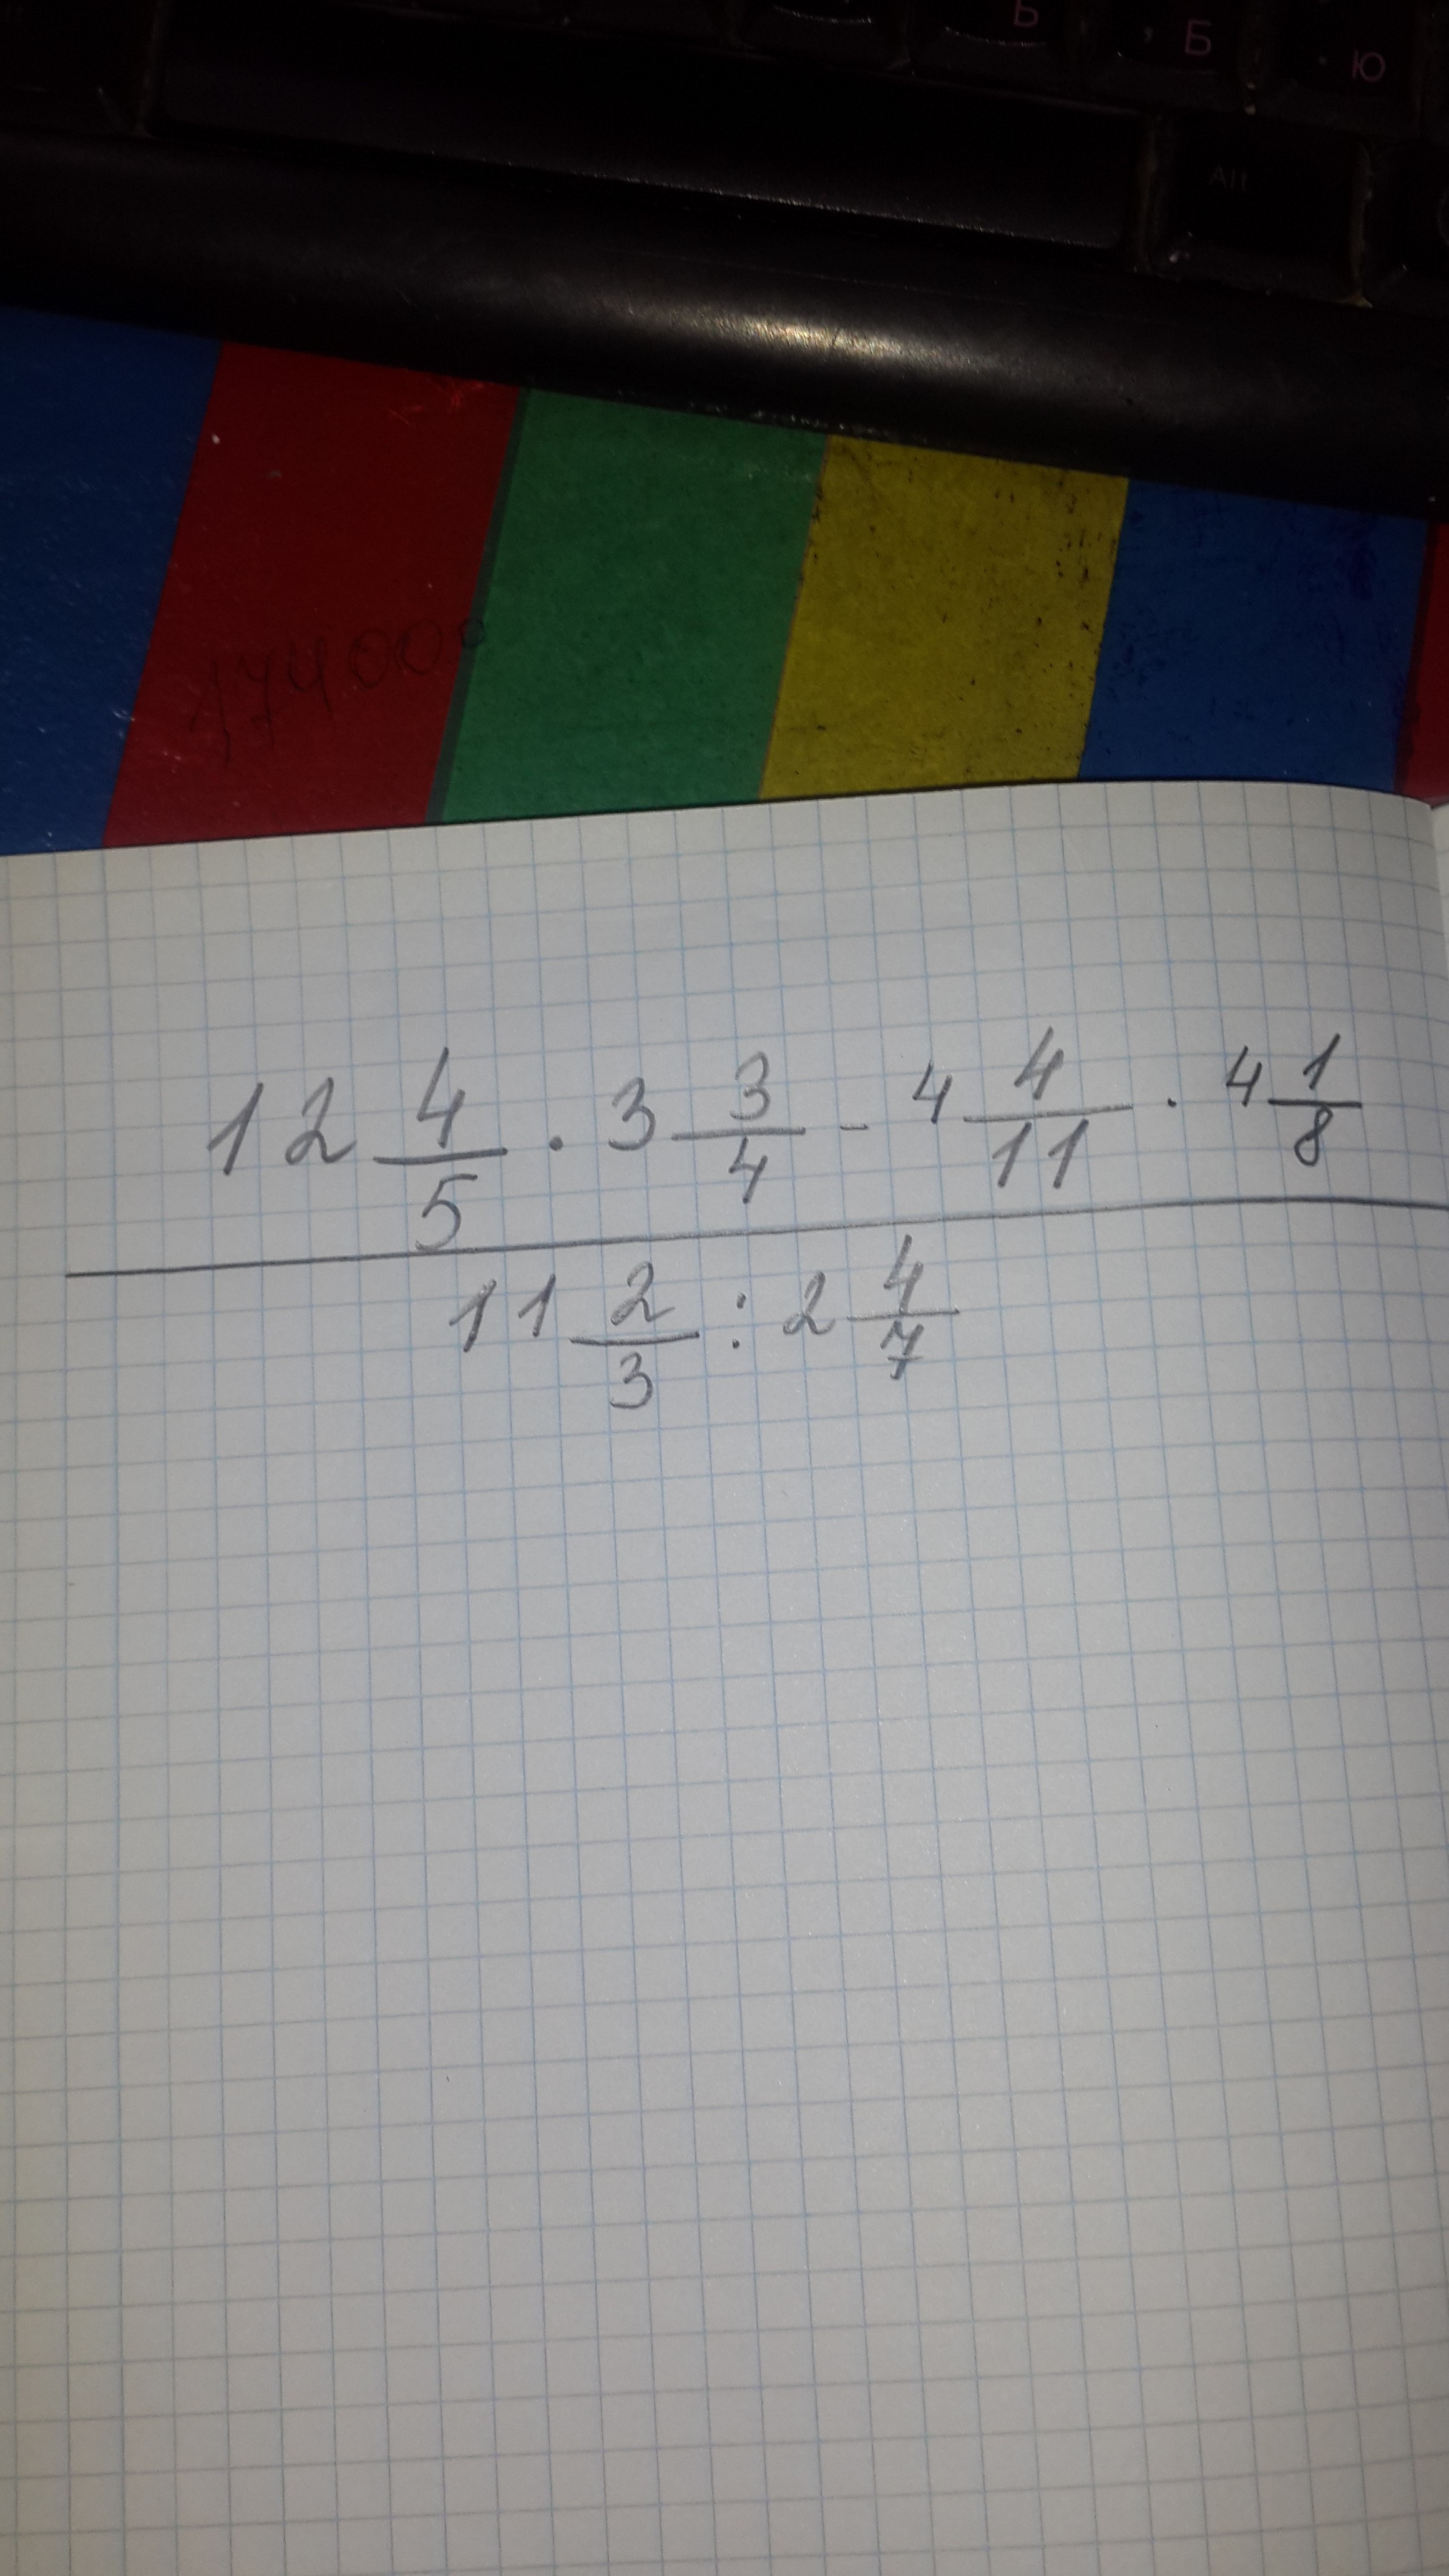 Ь Б Ю
Alt
174000
12 4/5 · 3 3/4 - 4 4/11 · 4 1/8
11 2/3 : 2 4/7